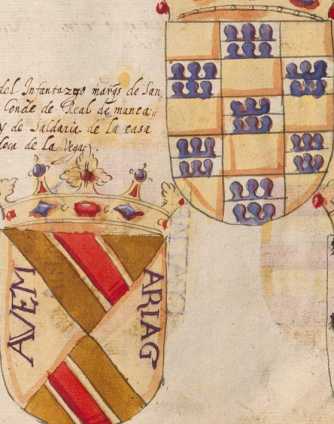 del Infantazgo marqs de San
Conde de Real de mança
y de Saldaña de la casa
de la Vega
AVEM
ARIAG